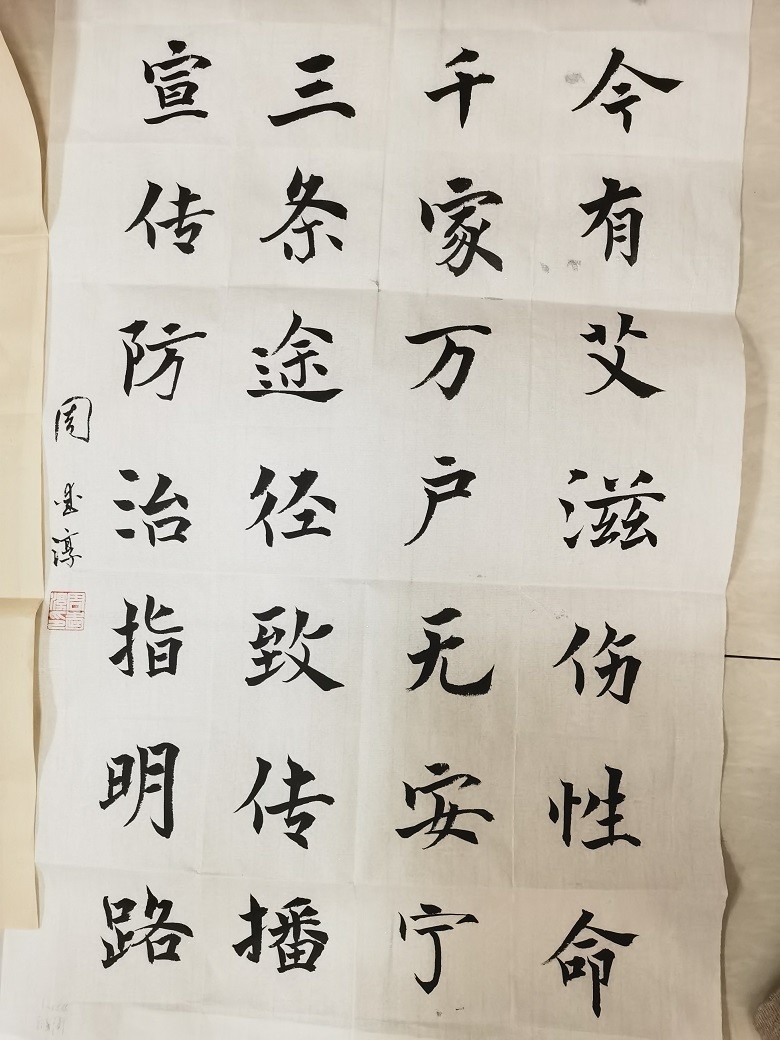 今有艾滋伤性命
千家万户无安宁
三条途径致传播
宣传防治指明路
周 淳